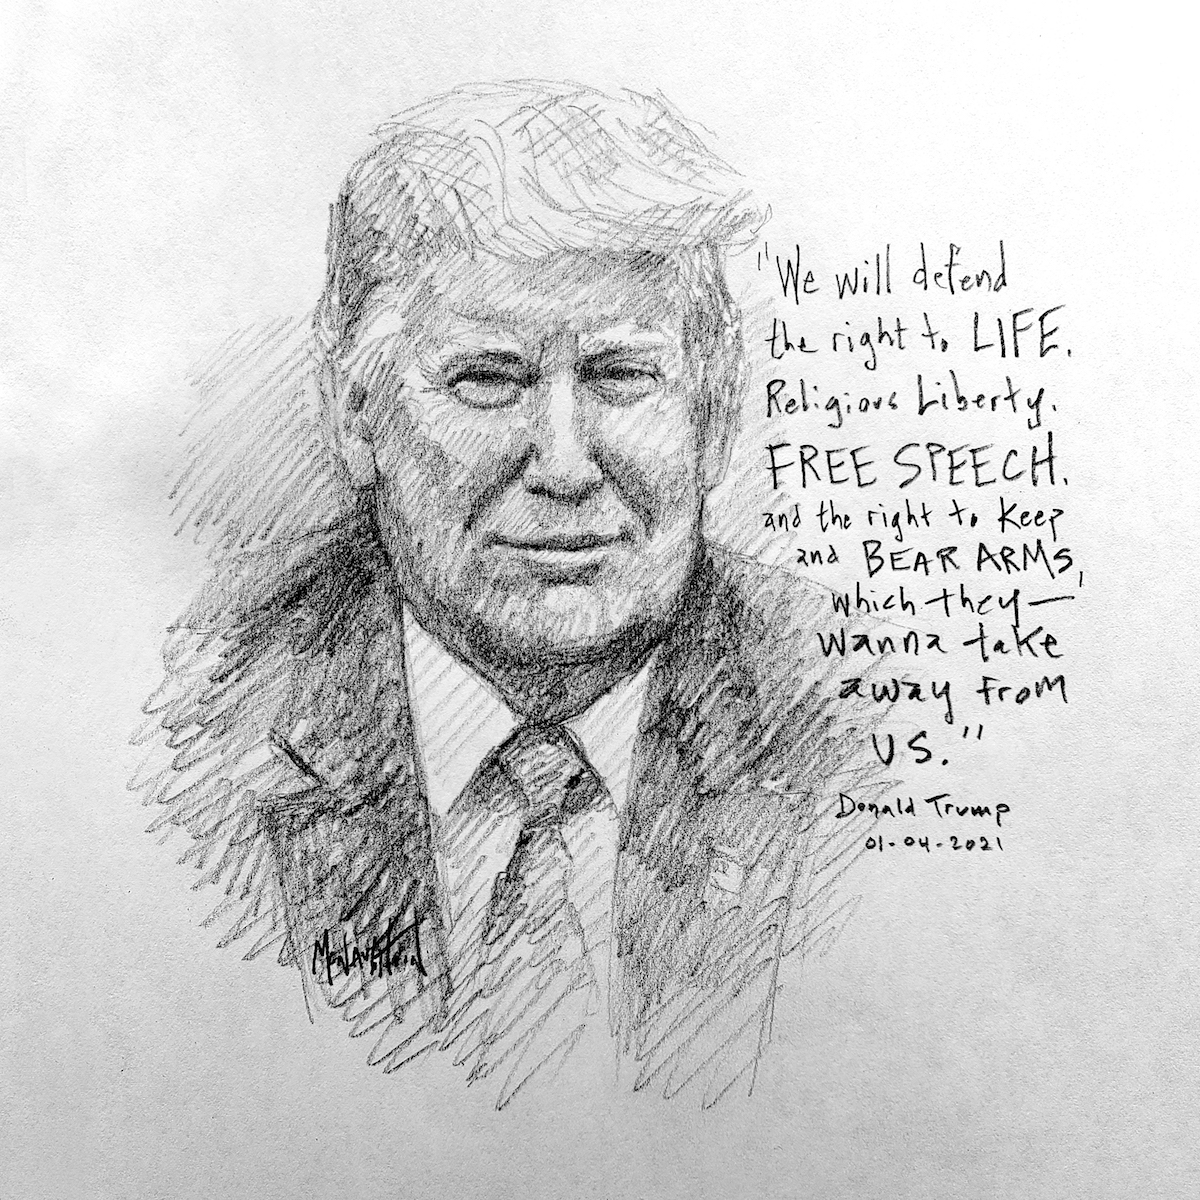 "We will defend
the right to LIFE.
Religious Liberty.
FREE SPEECH.
and the right to keep
and BEAR ARMS,
which they—
wanna take
away from
US."
Donald Trump
01-04-2021